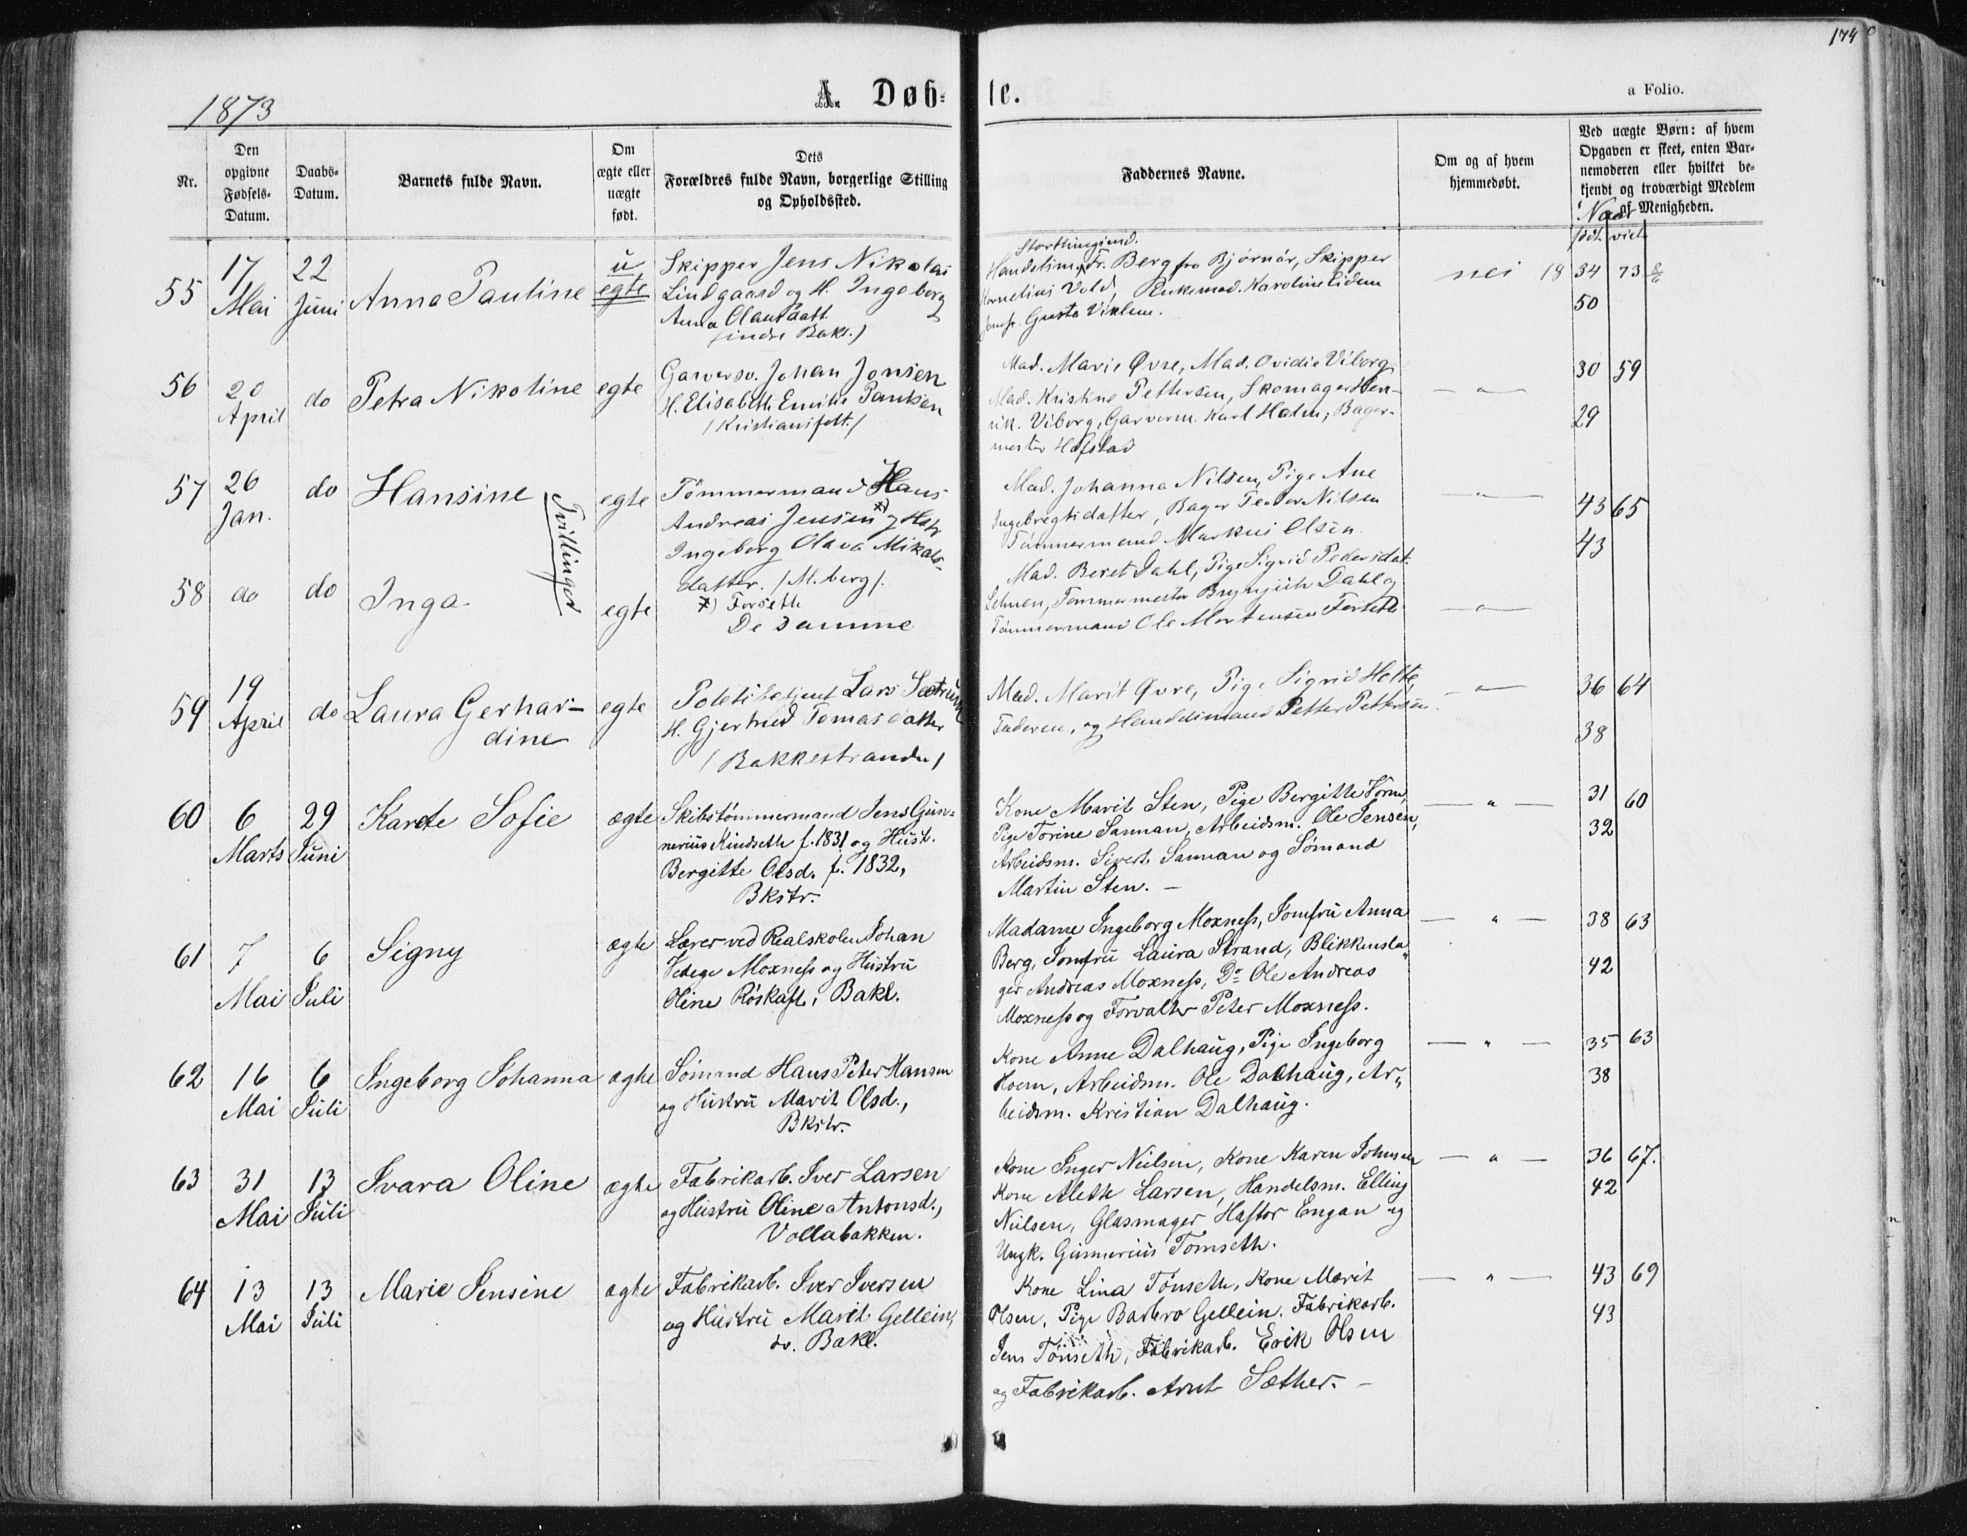 174
1873
A. Døb-
te.
a Folio.
Nr.
Den opgivne Fødsels-Datum.
Daabs-Datum.
Barnets fulde Navn.
Om ægte eller uægte født.
Dets Forældres fulde Navn, borgerlige Stilling og Opholdssted.
Faddernes Navne.
Om og af hvem hjemmedøbt.
Ved uægte Børn: af hvem Opgaven er skeet, enten Barnemoderen eller hvilket bekjendt og troværdigt Medlem af Menigheden.
Naar
født. viet
55
17 Mai
22 Juni
Anna Pauline
u
egte
Skipper Jens Nikolai
Lindgaard og H. Ingeborg
Anna
indre Bakl.)
Storthingsmd.
Handelsm. Fr. Berg fra Bjørnør, Skipper
Kornelius Vold, Enkemad. Karoline Lidem
Jomfr. Gusta Viklem.
nei
18 34 73
50
56
20 April
do
Petra Nikoline
egte
Garversv. Johan Jonsen
H. Elisabeth Emilie Paulsen
/Kristiansfelt./
Mad. Marie Øvre, Mad. Ovidia Viborg
Mad. Kristine Pettersen, Skomager Hen-
rik. Viborg, Garverm. Karl Halm, Bager-
mester Hofstad
— " —
30 59
29
57
26 Jan.
do
Hansine
Tvillinger
egte
Tømmermand Hans
Andreas Jensen *) og Hstr
Ingeborg Olava Mikals-
datter. /M.berg/.
*) Forseth
Mad. Johanna Nilsen, Pige Ane
Ingebregtsdatter, Bager Peder Nilsen
Tømmermand Markus Olsen.
— " —
43 65
43
58
do
do
Inga
egte
De Samme
Mad. Beret Dahl, Pige Sigrid Pedersdat.
Lehnen, Tømmermester Brynjulv Dahl og
Tømmermand Ole Mortensen Forseth
— " —
59
19 April
do
Laura Gerhar-
dine
egte
Politibetjent Lars Sætrum
H. Gjertrud Tomasdatter
/Bakkestranden/
Mad. Marit Øvre, Pige Sigrid Holte,
Faderen, og Handelsmand Petter Pettersen.
— " —
36 64
38
60
6 Marts
29 Juni
Karete Sofie
ægte
Skibstømmermand Jens Gun-
nerius Kindseth f. 1831 og Hust.
Bergitte Olsd. f. 1832,
Bkstr.
Kone Marit Sten, Pige Bergitte Horne,
Pige Torine Sannan, Arbeidsm. Ole Jensen,
Arbeidsm. Sivert Sannan og Sømand
Martin Sten. —
— " —
31 60
32
61
7 Mai
6 Juli
Signy
ægte
Lærer ved Realskolen Johan
Vedege Moxness og Hustru
Oline Röskaft, Bakl.
Madame Ingeborg Moxness, Jomfru Anna
Berg, Jomfru Laura Strand, Blikkensla-
ger Andreas Moxness, Do Ole Andreas
Moxness og Forvalter Peter Moxness.
— " —
38 63
42
62
16 Mai
6 Juli
Ingeborg Johanna
ægte
Sømand Hans Peter Hansen
og Hustru Marit Olsd.,
Bkstr.
Kone Anne Dalhaug, Pige Ingeborg
Hoem, Arbeidsm. Ole Dalhaug, Ar-
beidsm. Kristian Dalhaug.
— " —
35 63
38
63
31 Mai
13 Juli
Ivara Oline
ægte
Fabrikarb. Iver Larsen
og Hustru Oline Antonsd.,
Vollabakken.
Kone Inger Nielsen, Kone Karen Johnsen
Kone Aleth Larsen, Handelsm. Elling
Nielsen, Glasmager Haftor Engan og
Ungk. Gunnerius Tomseth.
— " —
36 67.
42
64
13 Mai
13 Juli
Marie Jensine
ægte
Fabrikarb. Iver Iversen
og Hustru Marit Gellein,
Bakl.
Kone Lina Tönseth, Kone Marit
Olsen, Pige Barbro Gellein, Fabrikarb.
Jens Tönseth, Fabrikarb. Erik Olsen
og Fabrikarb. Arnt Sæther. —
— " —
43 69
43